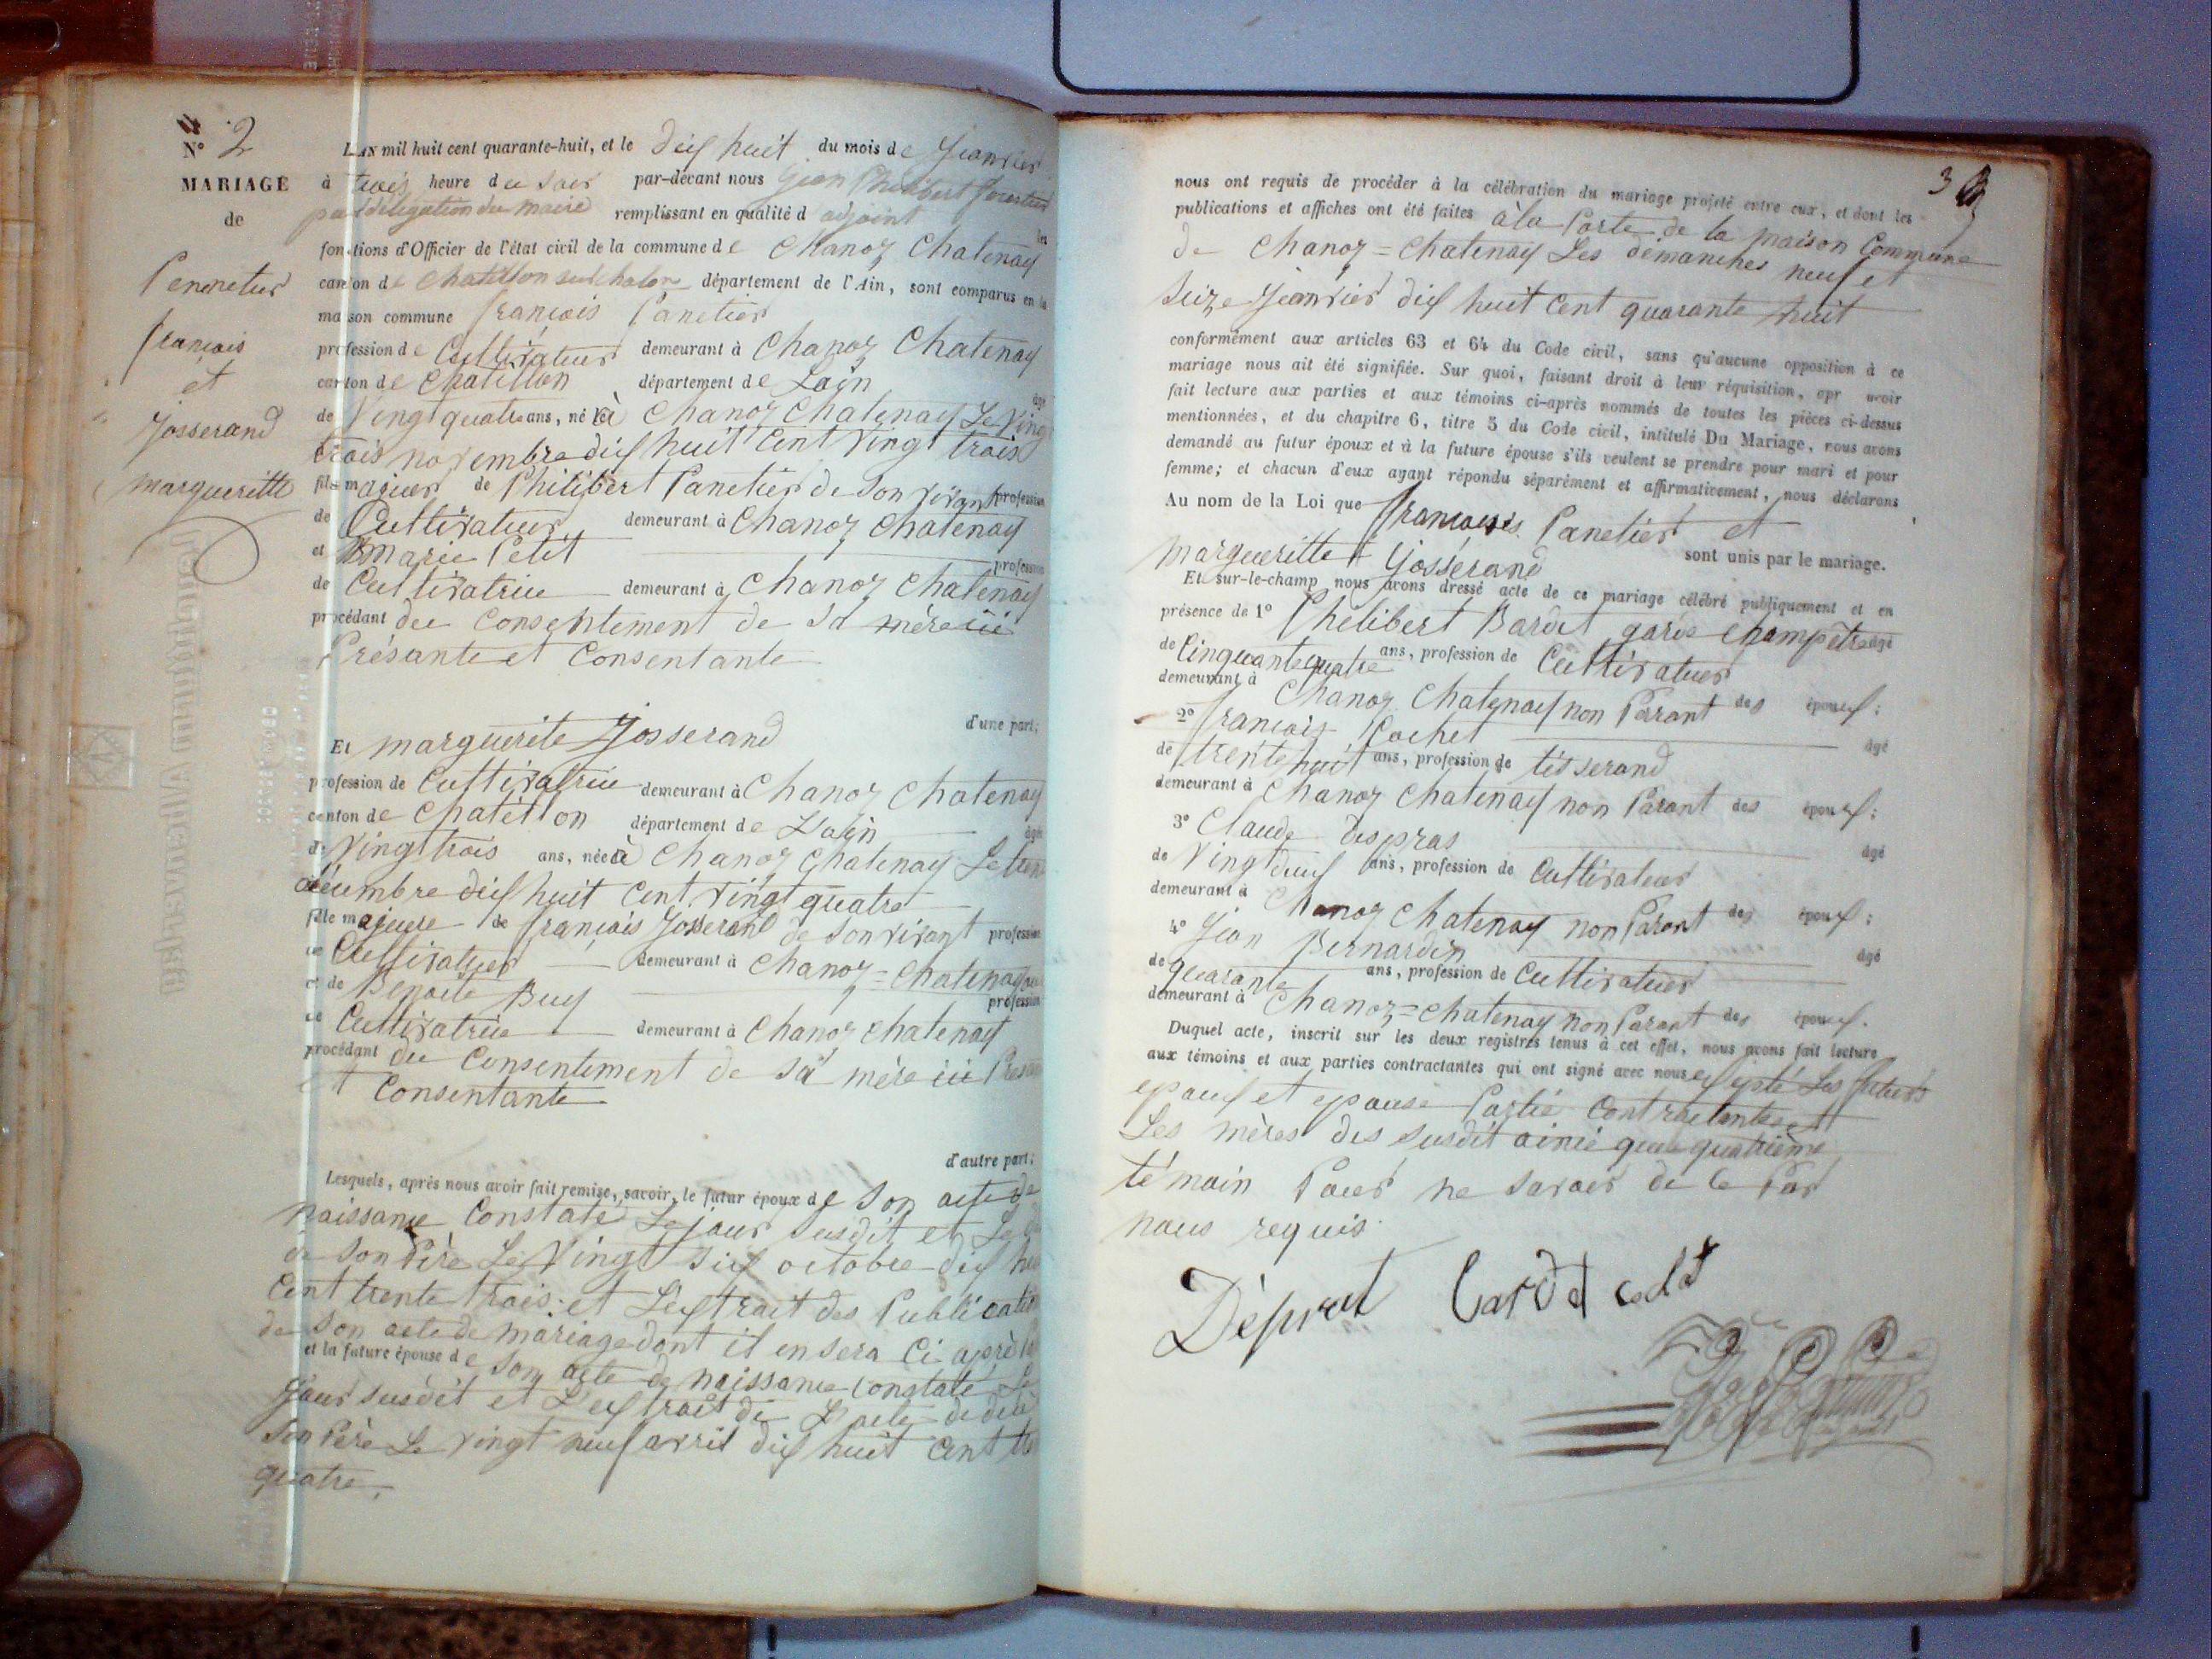 N° 2
MARIAGE
de
Pennetier
francois
et
Josserand
margueritte
L'AN mil huit cent quarante-huit, et le dix huit du mois de Janvier
à trois heure du soir par-devant nous Jean Philibert
par déligation du maire remplissant en qualité d adjoint les
fonctions d'Officier de l'état civil de la commune de Chanoz Chatenay
canton de Chatillon sur Chalar département de l'Ain, sont comparus en la
maison commune francois Panetier
profession de Cultivateur demeurant à Chanoz Chatenay
canton de Chatillon département de Lain
âgé
de Vingt quatre ans, né à Chanoz Chatenay Le Vingt
trois novembre dix huit Cent Vingt trois
fils majeur de Philibert Panetier de son vivant profession
de Cultivateur demeurant à Chanoz Chatenay
et marie Petit
profession
de Cultivatrice demeurant à Chanoz Chatenay
procédant du Consentement de sa mère ici
Présante et Consentante
d'une part;
Et marguerite Josserand
profession de Cultivatrice demeurant à Chanoz Chatenay
canton de Chatillon département de Lain âgée
de Vingt trois ans, née à Chanoz Chatenay Le
décembre dix huit Cent Vingt quatre
fille majeure de françois Josserand de son vivant profession
de Cultivateur demeurant à Chanoz=Chatenay
et de Benoite Buy
profession
de Cultivatrice demeurant à Chanoz Chatenay
procédant du Consentement de sa mère ici
et Consentante
d'autre part;
Lesquels, après nous avoir fait remise, savoir, le futur époux de son acte de
naissance Constaté Le jour susdit et
de son Père Le Vingt six octobre dix
Cent trente trois; et L'extrait des
de son acte de mariage dont il en sera Ci après
et la future épouse de son acte de naissance Constaté Le
Jour susdit et L'extrait de L'acte de
son Père Le vingt neuf avril dix huit Cent
quatre.
3
nous ont requis de procéder à la célébration du mariage projeté entre eux, et dont les
publications et affiches ont été faites à la Porte de la maison Commune
de Chanoz=Chatenay Les dimanches neuf et
seize Janvier dix huit Cent quarante huit
conformément aux articles 63 et 64 du Code civil, sans qu'aucune opposition à ce
mariage nous ait été signifiée. Sur quoi, faisant droit à leur réquisition, apr avoir
fait lecture aux parties et aux témoins ci-après nommés de toutes les pièces ci-dessus
mentionnées, et du chapitre 6, titre 5 du Code civil, intitulé Du Mariage, nous avons
demandé au futur époux et à la future épouse s'ils veulent se prendre pour mari et pour
femme; et chacun d'eux ayant répondu séparément et affirmativement, nous déclarons
Au nom de la Loi que francois Panetier et
margueritte Josserand sont unis par le mariage.
Et sur-le-champ nous avons dressé acte de ce mariage célébré publiquement et en
présence de 1° Philibert Bardet garde champêtre âgé
de Cinquante quatre ans, profession de Cultivateur
demeurant à Chanoz Chatenay non Parant des époux;
2° francois Pochet âgé
de trente huit ans, profession de tisserand
demeurant à Chanoz Chatenay non Parant des époux;
3° Claude Despras âgé
de Vingt deux ans, profession de Cultivateur
demeurant à Chanoz Chatenay non Parant des époux;
4° Jean Bernardin âgé
de quarante ans, profession de Cultivateur
demeurant à Chanoz=Chatenay non Parant des époux.
Duquel acte, inscrit sur les deux registres tenus à cet effet, nous avons fait lecture
aux témoins et aux parties contractantes qui ont signé avec nous excepté Les futurs
epoux et epouse Partie Contractantes et
Les mères des susdit ainie que le quatrième
témoin Pour ne savoir de ce Par
nous requis.
Déprat Bardet